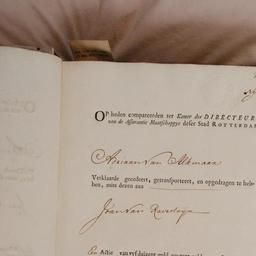 OP heden compareerden ter Kamer der DIRECTEUR
van de Assurantie Maatschappye deser Stad ROTTERDA
Adriaan van Alkmaar
Verklaarde gecedeert, getransporteert, en opgedragen te heb-
ben, mits desen aan
Johan van
Een Actie van vyfduisent guld